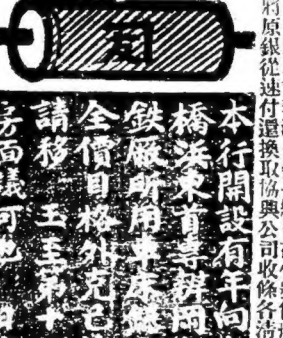 將原銀從速付還換取協興公司收條各清
本行開設有年向
橋浜東首專辦
鉄廠所用車床
全價目格外克己
請移 玉至第十
房面議可也